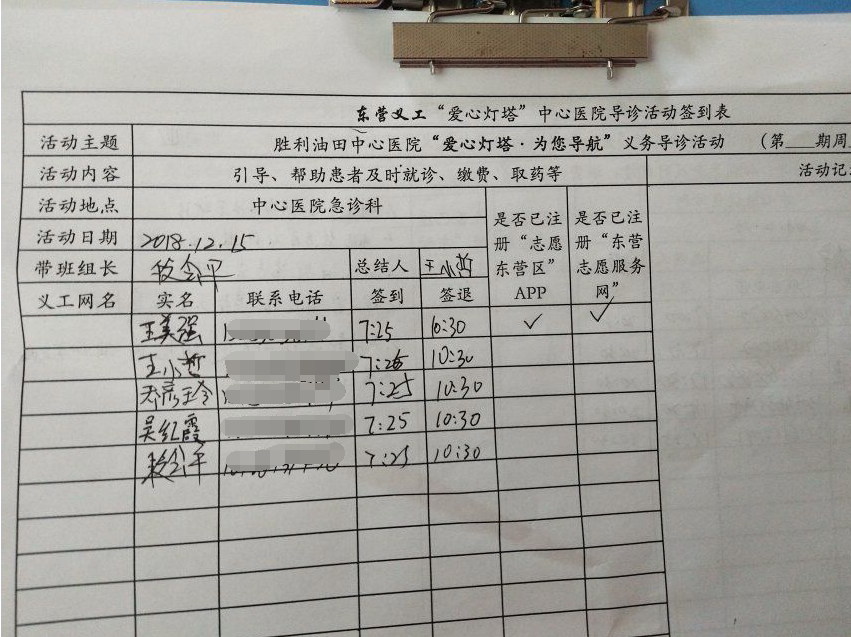 东营义工“爱心灯塔”中心医院导诊活动签到表
活动主题 胜利油田中心医院“爱心灯塔·为您导航”义务导诊活动 (第___期周
活动内容 引导、帮助患者及时就诊、缴费、取药等 活动记
活动地点 中心医院急诊科
是否已注册“志愿东营区”APP 是否已注册“东营志愿服务网”
活动日期 2018.12.15
带班组长 总结人 王小哲
义工网名 实名 联系电话 签到 签退
王美强 7:25 10:30 ✓ ✓
王小哲 7:25 10:30
7:25 10:30
吴红霞 7:25 10:30
7:25 10:30